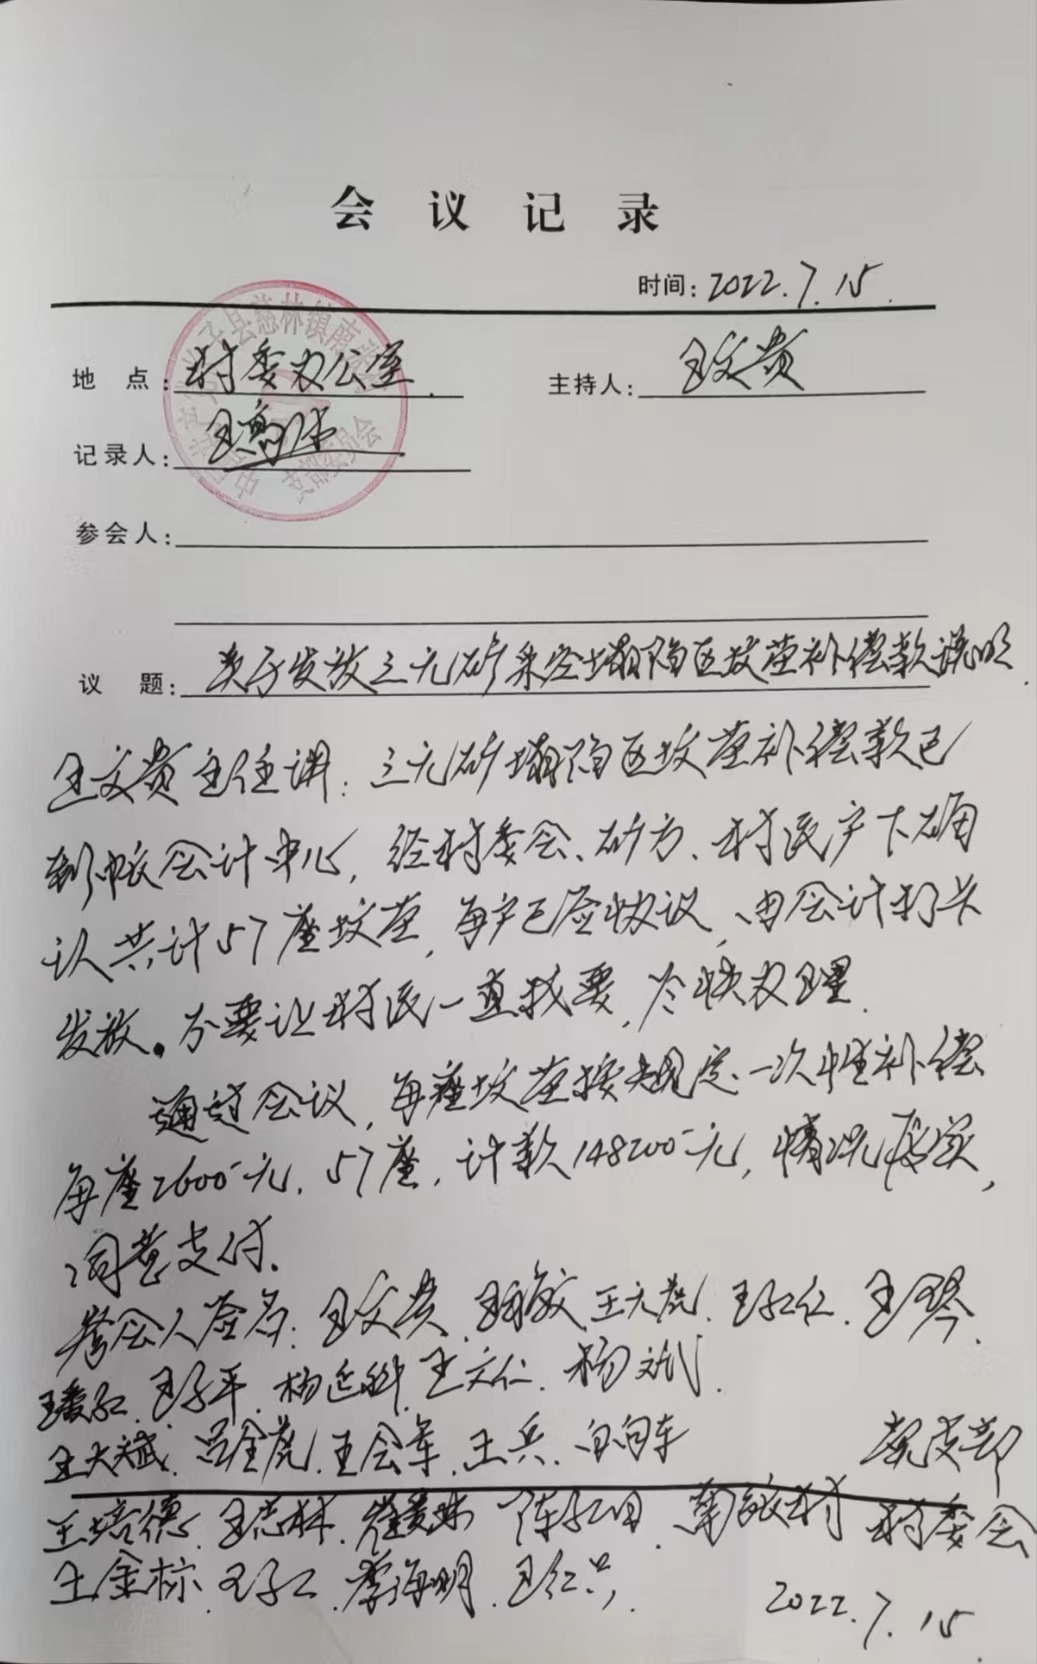 会议记录
时间: 2022.7.15.
地 点: 村委办公室. 主持人: 王文贵
记录人: 王
参会人:
议 题: 关于发放三元矿采空塌陷区坟茔补偿款说明.
王文贵主任讲: 三元矿塌陷区坟茔补偿款已
到帐会计中心, 经村委会、矿方、村民户下确
认共计57座坟茔, 每户已签协议, 由会计打卡
发放。不要让村民一直找要, 尽快办理.
通过会议, 每座坟茔按规定一次性补偿
每座2600元. 57座, 计款148200元, 情况属实,
同意支付.
参会人签名: 王文贵. 王 王六虎. 王红仁. 王琴.
王爱红. 王子平. 杨 王文仁. 杨斌.
王大斌. 吕全虎. 王会军. 王兵.
王培德. 王志林. 陈红田. 村 村委会
王金标. 王 李海明. 王红兵.
2022.7.15